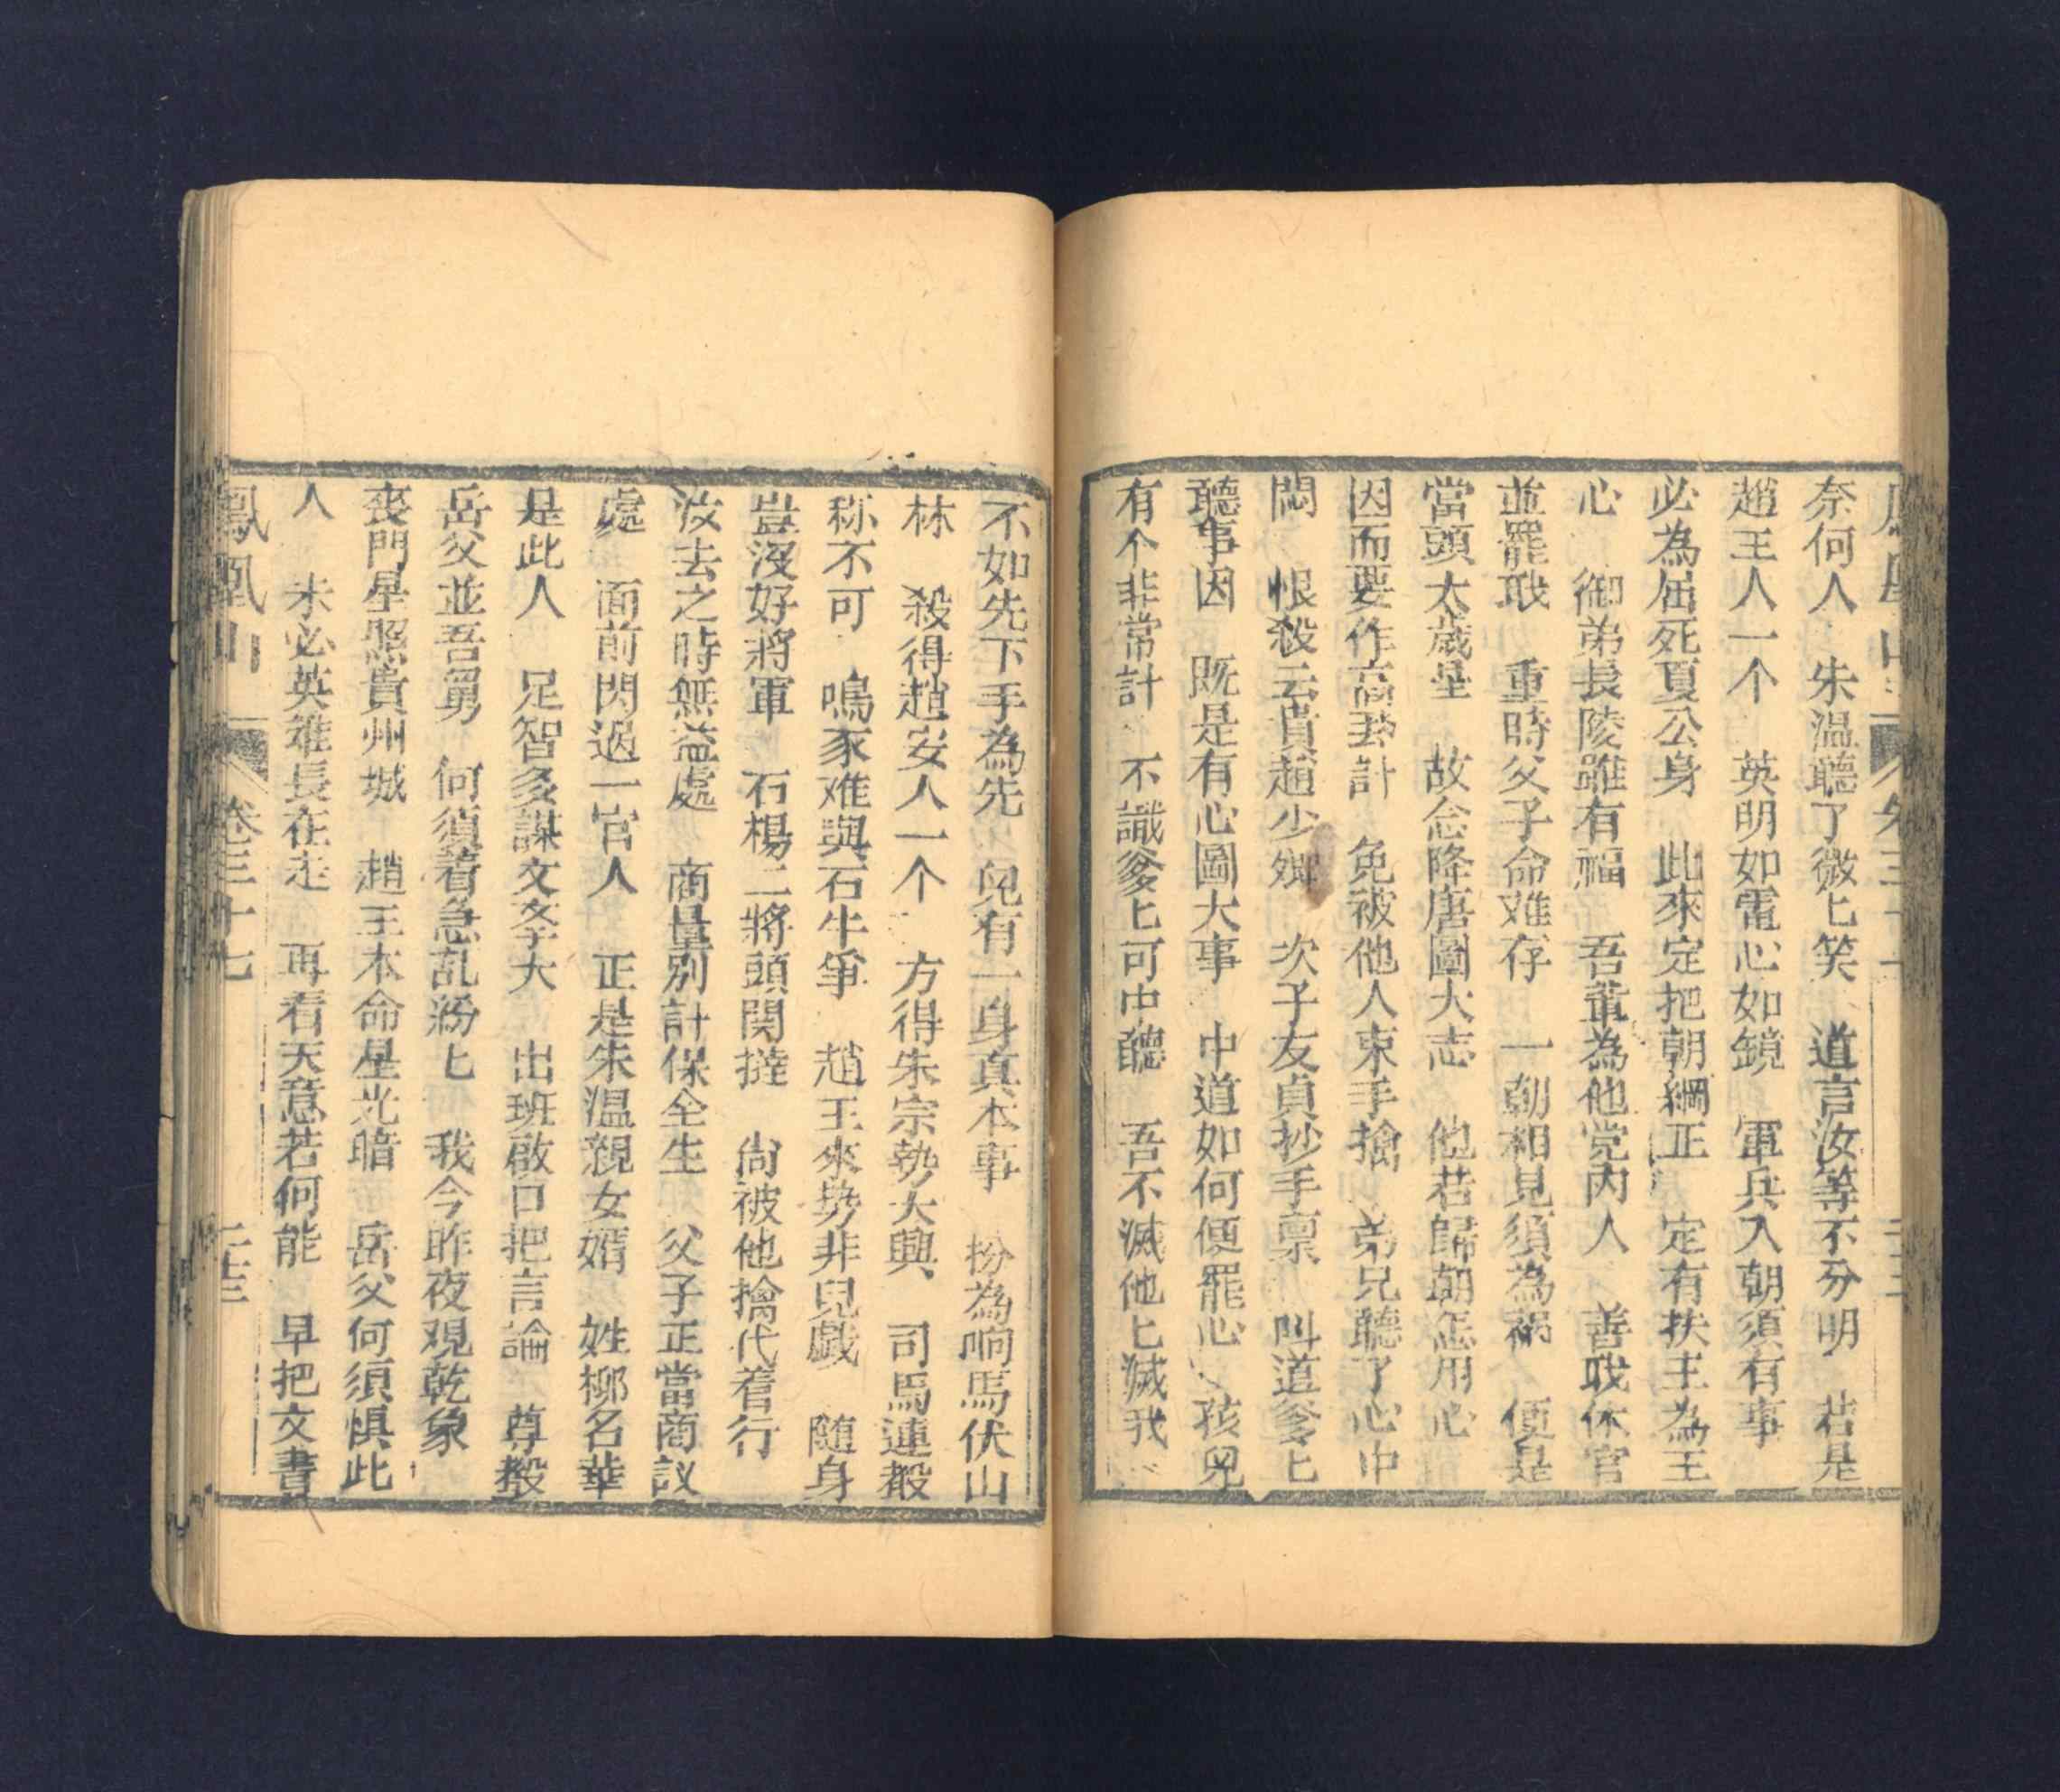 奈何人　朱温聽了微〻笑　道言汝等不分明　若是
趙王人一个　英明如電心如鏡　軍兵入朝須有事
必為屈死夏公身　此來定把朝綱正　定有扶主為王
心　御弟長陵雖有福　吾輩為他党内人　善哉休官
並罷戢　重時父子命难存　一朝相見須為祸　便是
當頭大歲星　故念降唐圖大志　他若歸朝怎用心
因而要作高卦計　免被他人束手擒　弟兄聽了心中
悶　恨殺云貴趙少卿　次子友貞抄手禀　叫道爹〻
聽事因　既是有心圖大事　中道如何便罷心　孩兒
有个非常計　不識爹〻可中聽　吾不滅他〻滅我
不如先下手為先　兒有一身真本事　扮為响馬伏山
林　殺得趙安人一个　方得朱宗勢大興　司馬連聲
称不可　鳴豕难與石牛争　趙王來势非兒戲　随身
豈沒好將軍　石楊二將頭関撻　尚被他擒代着行
汝去之時無益處　商量别計保全生　父子正當商议
處　面前閃過一官人　正是朱温親女婿　姓柳名華
是此人　足智多謀文斈大　出班啟口把言論　尊聲
岳父並吾舅　何須着急乱紛〻　我今昨夜观乾象
喪門星照貴州城　趙王本命星光暗　岳父何須惧此
人　未必英雄長在走　再看天意若何能　早把文書
鳳凰山　卷三十七　二十三